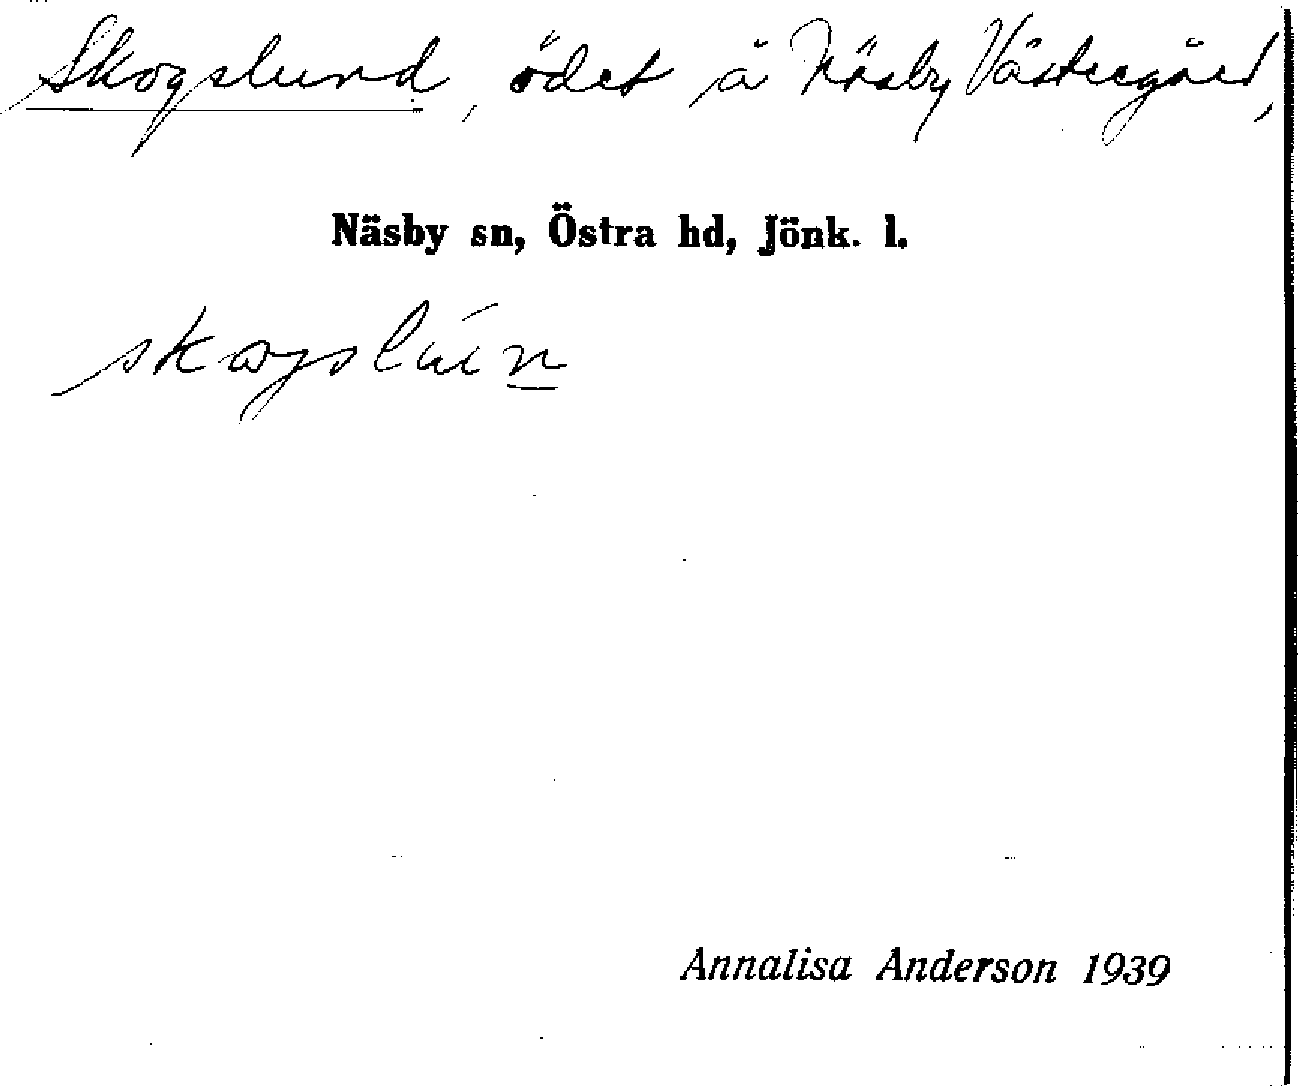 Skogslund, ödet å Näsby Västregård,
Näsby sn, Östra hd, Jönk. l.
Annalisa Anderson 1939